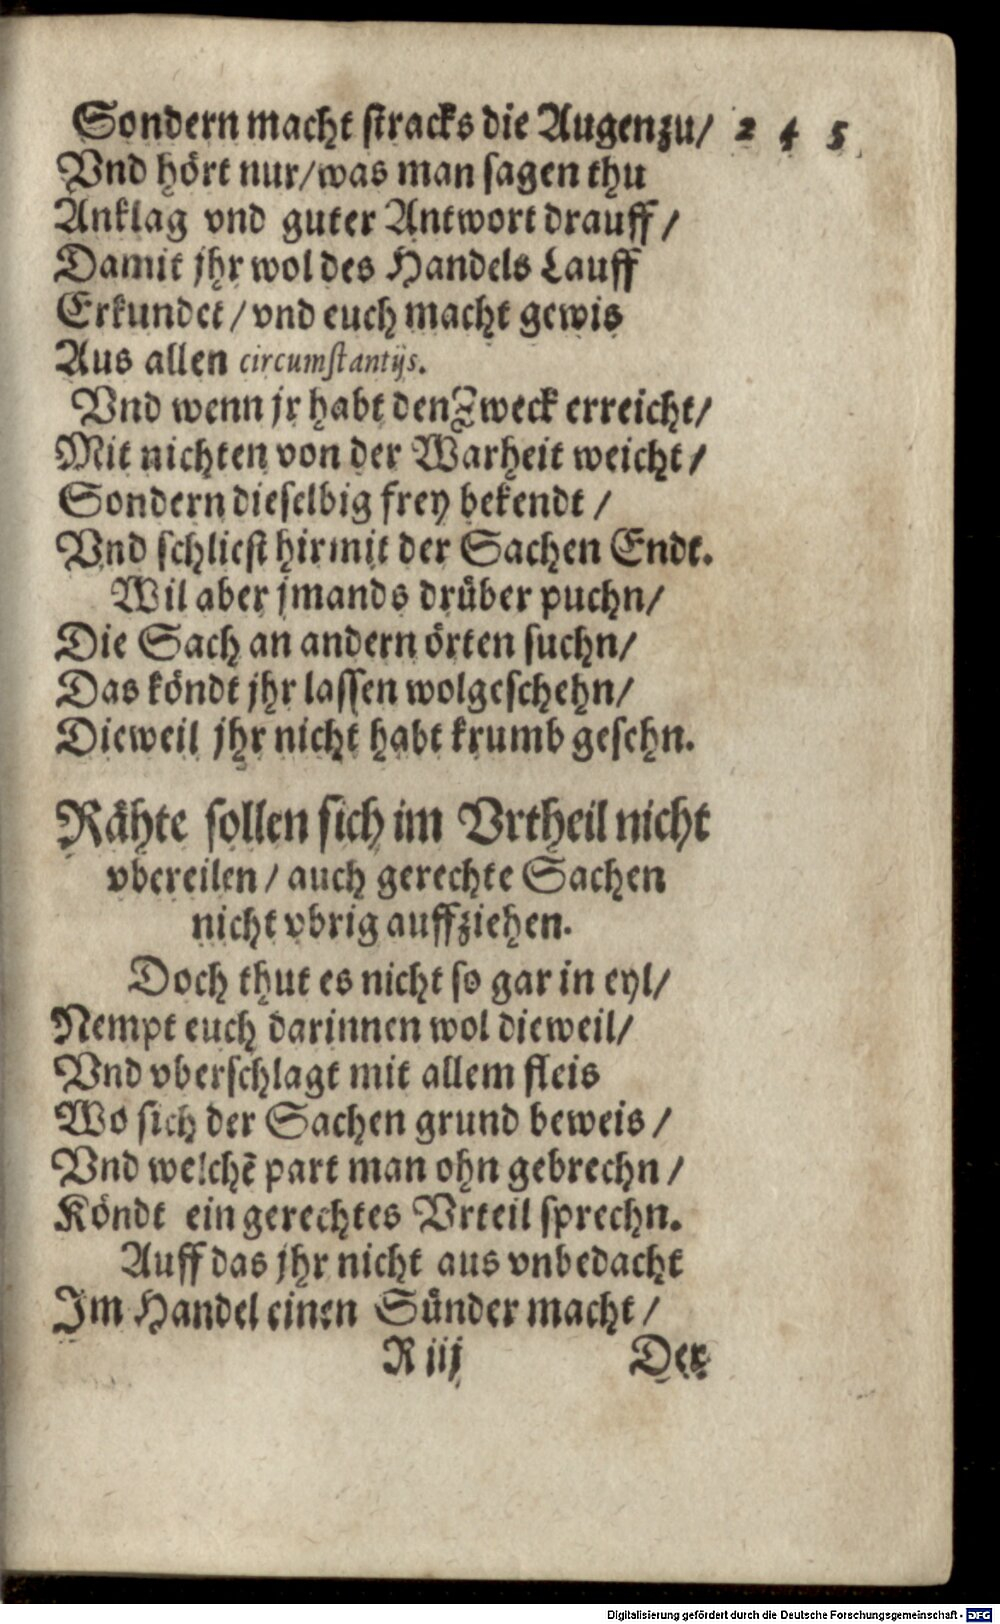 Sondern macht stracks die Augen zu/ 2 4 5
Vnd hört nur/ was man sagen thu
Anklag vnd guter Antwort drauff/
Damit jhr wol des Handels Lauff
Erkundet/ vnd euch macht gewis
Aus allen circumstantijs.
Vnd wenn jr habt den Zweck erreicht/
Mit nichten von der Warheit weicht/
Sondern dieselbig frey bekendt/
Vnd schliest hirmit der Sachen Endt.
Wil aber jmands drüber puchn/
Die Sach an andern örten suchn/
Das köndt jhr lassen wolgeschehn/
Dieweil jhr nicht habt krumb gesehn.
Rähte sollen sich im Vrtheil nicht
vbereilen/ auch gerechte Sachen
nicht vbrig auffziehen.
Doch thut es nicht so gar in eyl/
Nempt euch darinnen wol dieweil/
Vnd vberschlagt mit allem fleis
Wo sich der Sachen grund beweis/
Vnd welchẽ part man ohn gebrechn/
Köndt ein gerechtes Vrteil sprechn.
Auff das jhr nicht aus vnbedacht
Im Handel einen Sünder macht/
R iij Der
Digitalisierung gefördert durch die Deutsche Forschungsgemeinschaft - DFG